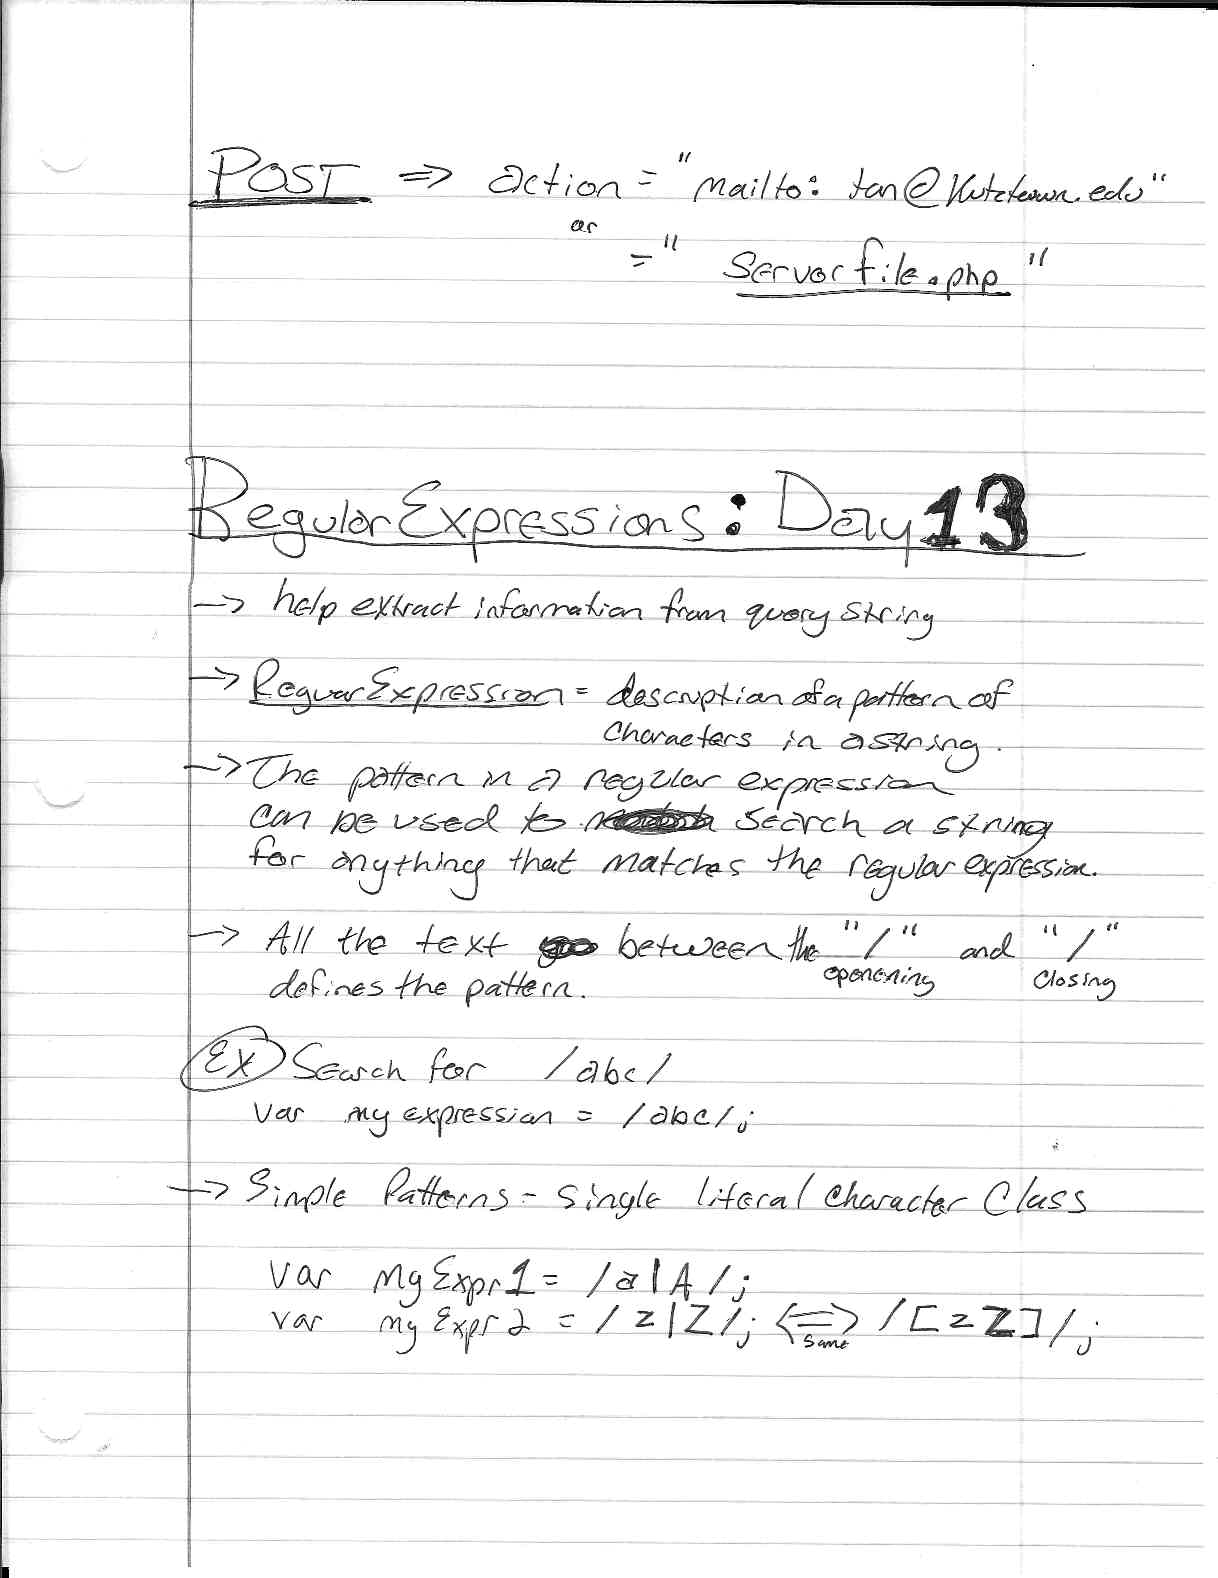 POST => action = "mailto: tan@kutztown.edu"
or
= " Serverfile.php "
Regular Expressions: Day 13
-> help extract information from query string
-> Reguar Expression = description of a pattern of
characters in a string.
-> The pattern in a regular expression
can be used to search a string
for anything that matches the regular expression.
-> All the text between the "/" and "/"
openening closing
defines the pattern.
Ex Search for /abc/
var myexpression = /abc/;
-> Simple Patterns - single literal character Class
var myExpr1 = /a|A/;
var myExpr2 = /z|Z/; <=> /[zZ]/;
same